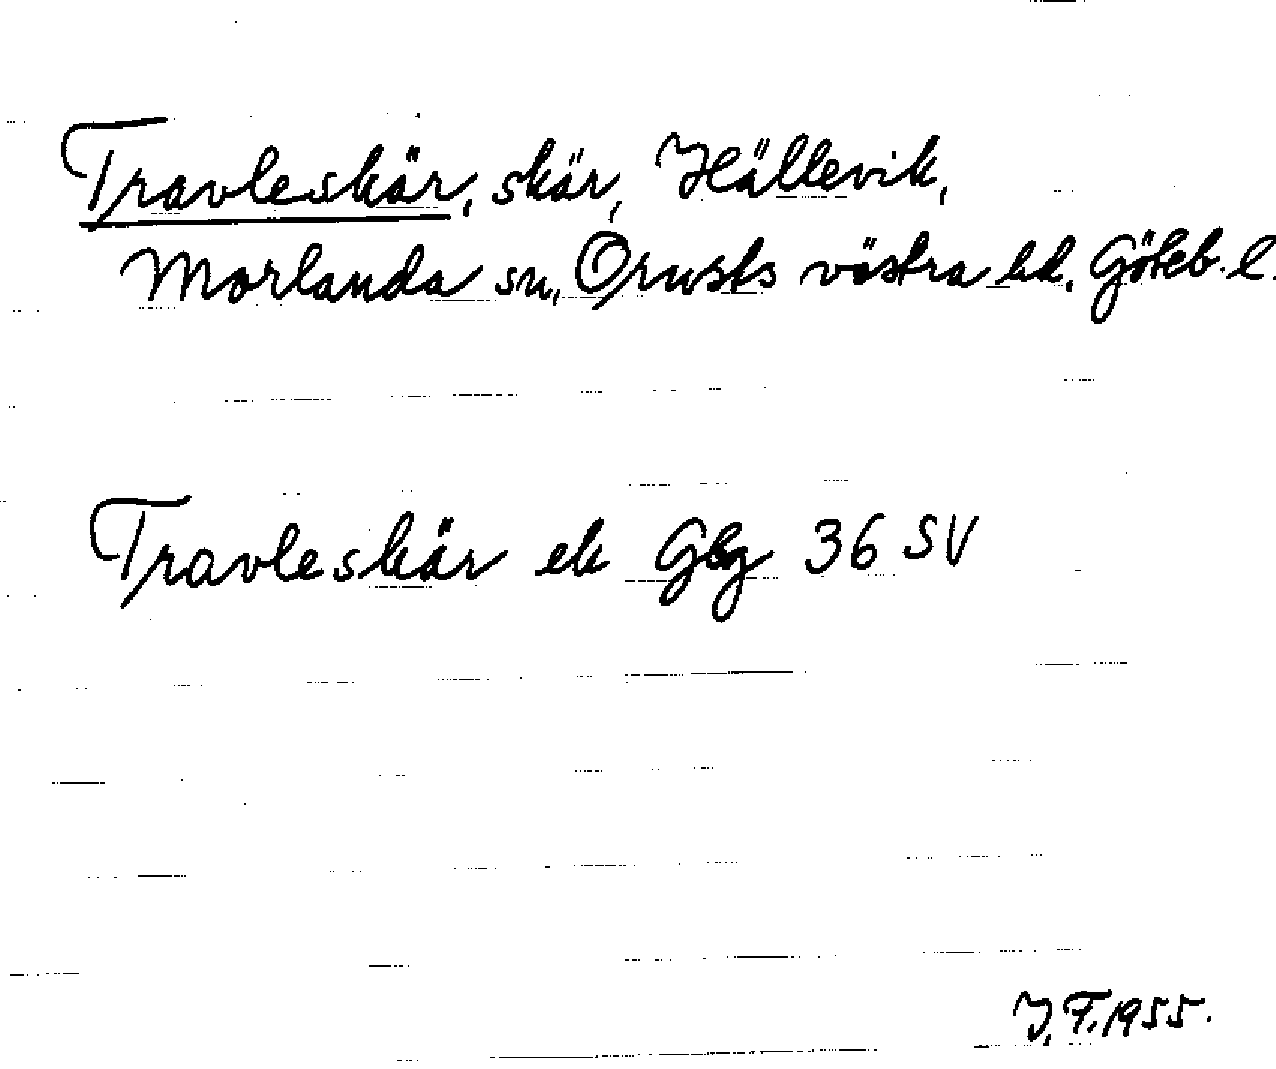 Travleskär, skär, Hällevik,
Morlanda sn, Orusts västra hd. Göteb. l.
Travleskär ek Gbg 36 SV
J. F. 1955.